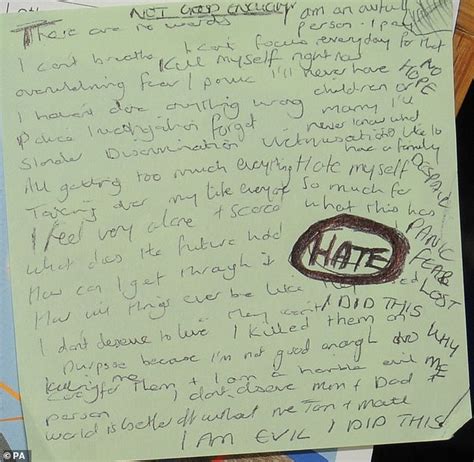 NOT GOOD ENOUGH
There are no words
am an awful
person. I pay
I can't breathe I can't focus everyday for that
Kill myself right now
overwhelming fear / panic I'll never have NO
HOPE
I haven't done anything wrong children or
marry I'll
Police investigation forget never know what
Slander Discrimination Victimisation it's like to
have a family
All getting too much everything Hate myself
DESPAIR
Taking over my life everyone so much for
I feel very alone + scared what this has
PANIC
What does the future hold
HATE
FEAR
How can I get through it
LOST
How will things ever be like
I DID THIS
I don't deserve to live I killed them on
WHY
purpose because I'm not good enough to
ME
care for them + I am a horrible evil
person I don't deserve Mum + Dad +
world is better off without me
I AM EVIL I DID THIS
© PA